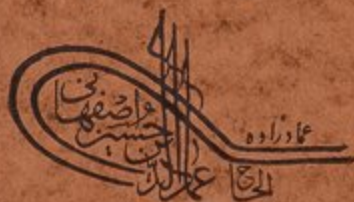 الحاج عمادالدین حسین اصفهانی
عمادزاده